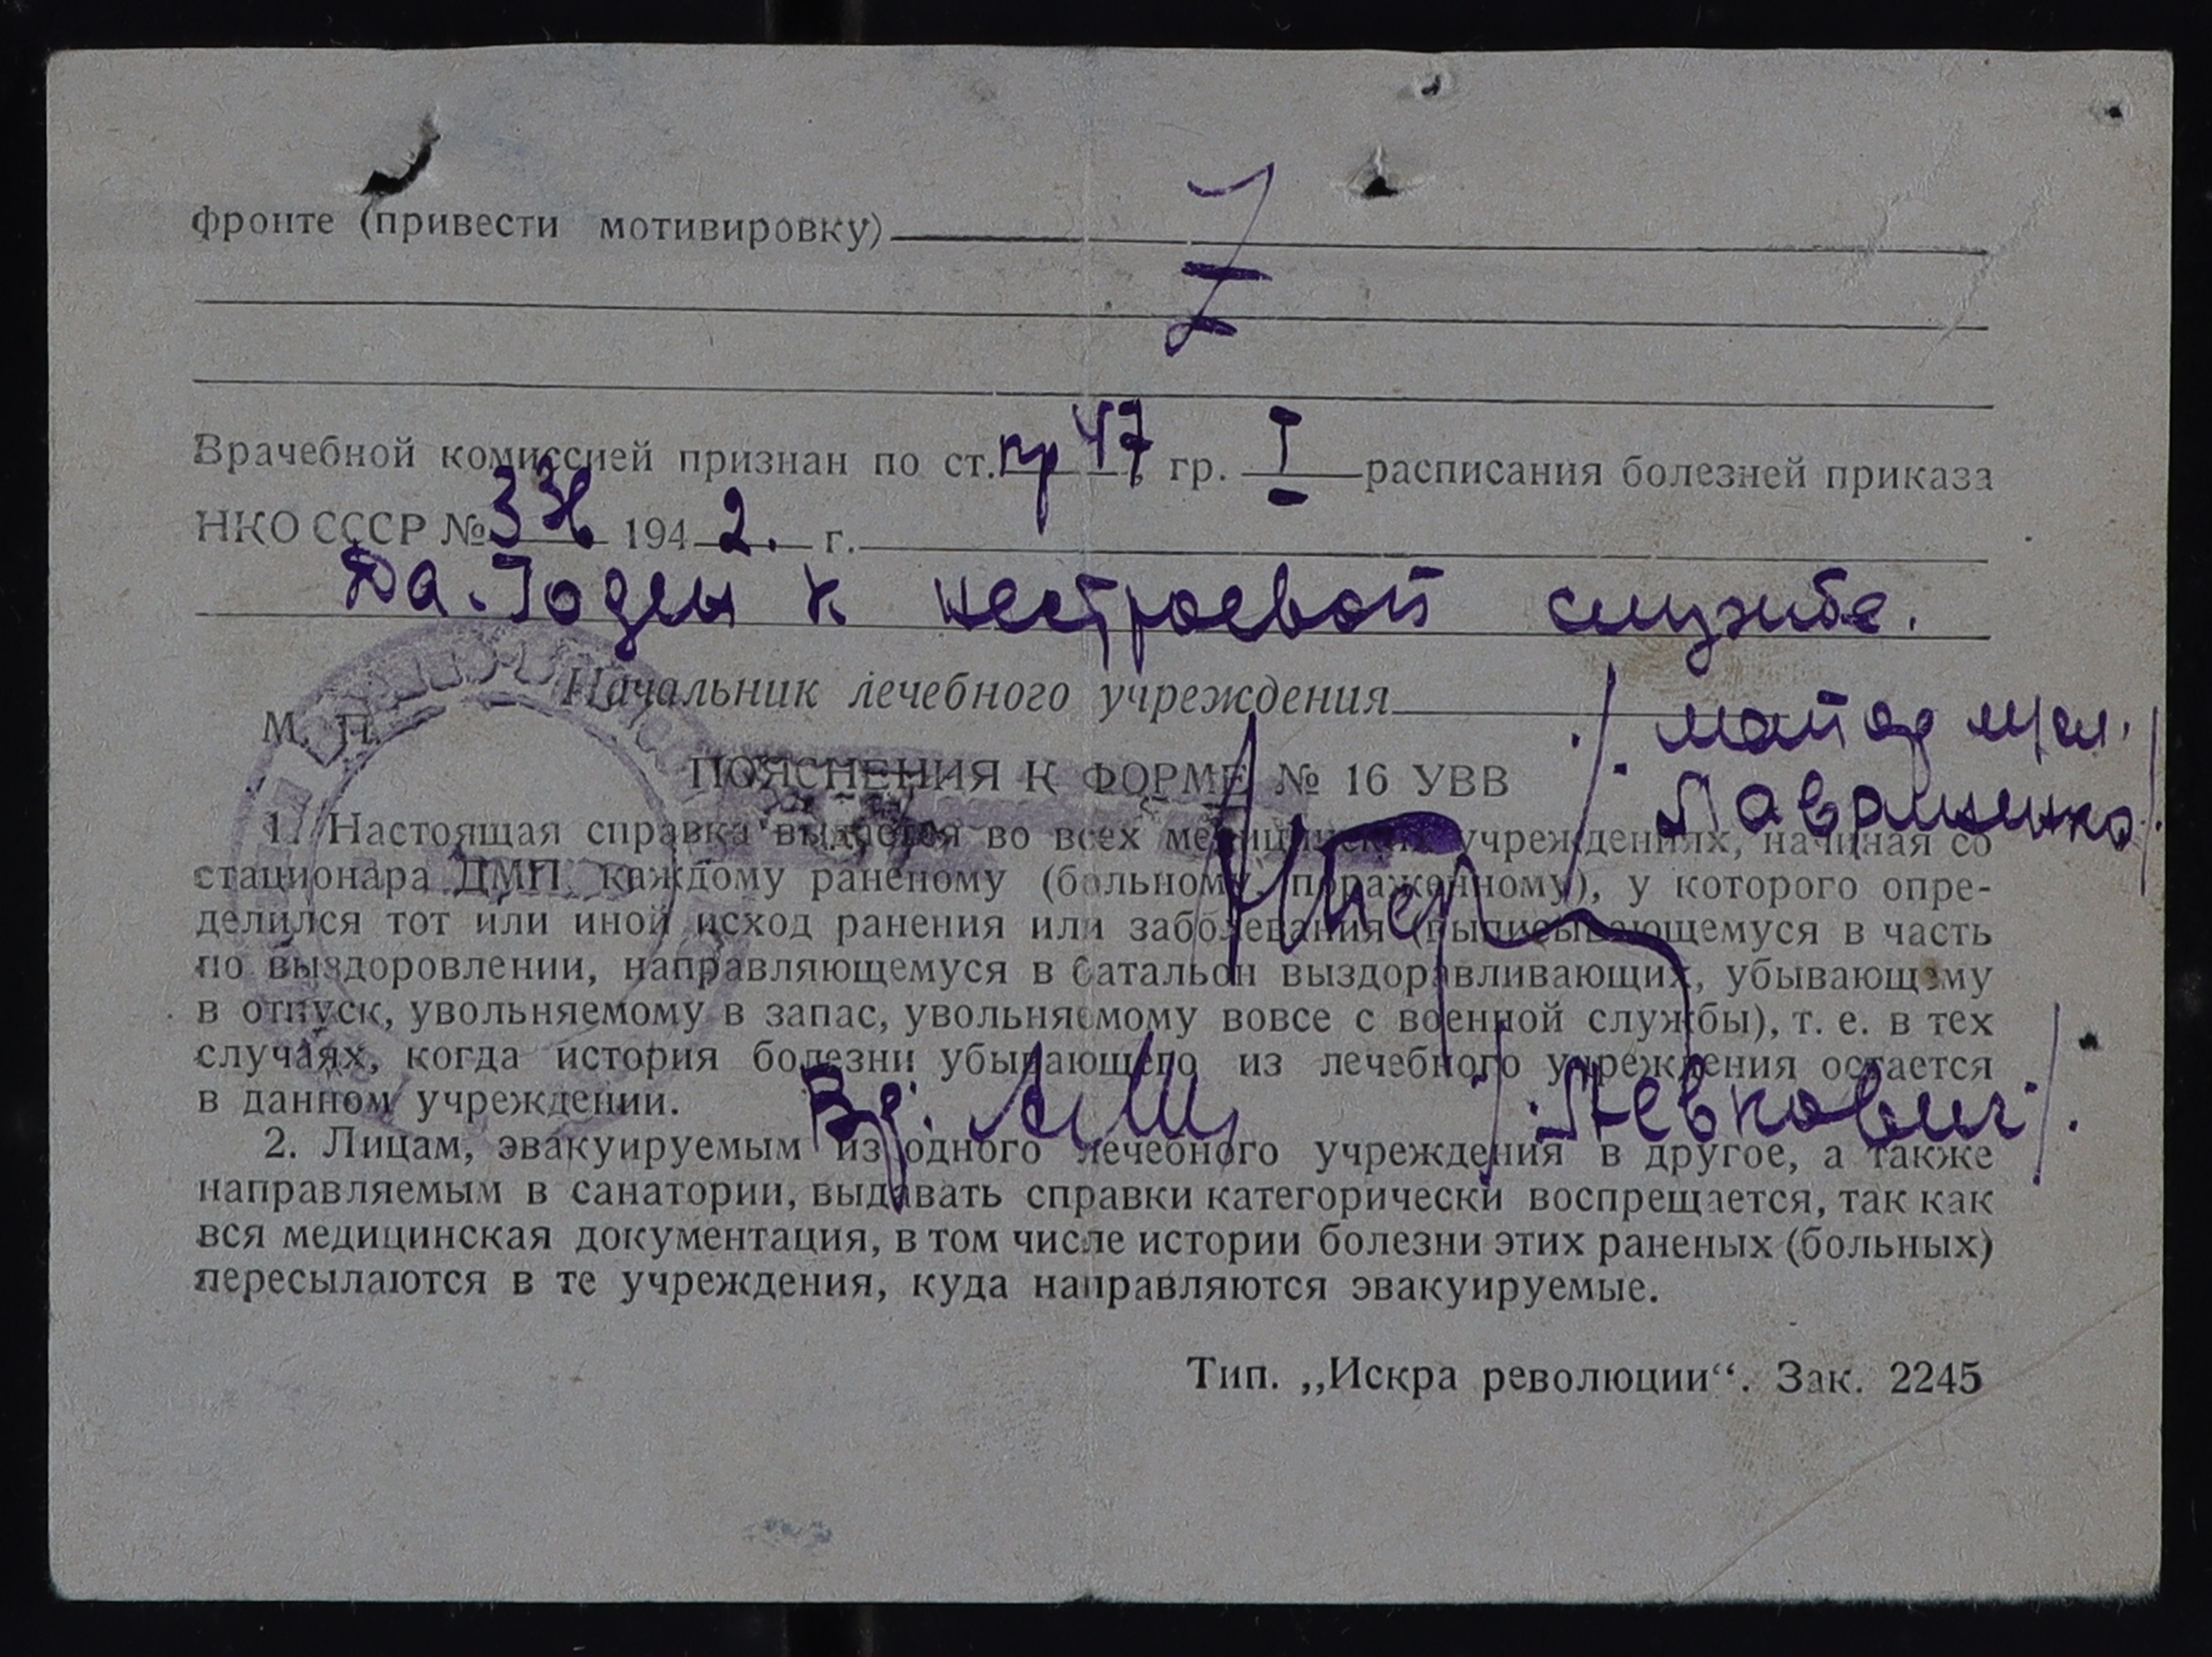 фронте (привести мотивировку)
Z
Врачебной комиссией признан по ст. пр 47 гр. I расписания болезней приказа
НКО СССР № 336 1942. г.
Да. Годен к нестроевой службе.
Начальник лечебного учреждения
М. П.
/майор м/сл.
Лавриненко/.
ПОЯСНЕНИЯ К ФОРМЕ № 16 УВВ
1. Настоящая справка выдается во всех медицинских учреждениях, начиная со
стационара ДМП, каждому раненому (больному, пораженному), у которого опре-
делился тот или иной исход ранения или заболевания (выписывающемуся в часть
по выздоровлении, направляющемуся в батальон выздоравливающих, убывающему
в отпуск, увольняемому в запас, увольняемому вовсе с военной службы), т. е. в тех
случаях, когда история болезни убывающего из лечебного учреждения остается
в данном учреждении.
/Левкович/.
2. Лицам, эвакуируемым из одного лечебного учреждения в другое, а также
направляемым в санатории, выдавать справки категорически воспрещается, так как
вся медицинская документация, в том числе истории болезни этих раненых (больных)
пересылаются в те учреждения, куда направляются эвакуируемые.
Тип. „Искра революции“. Зак. 2245